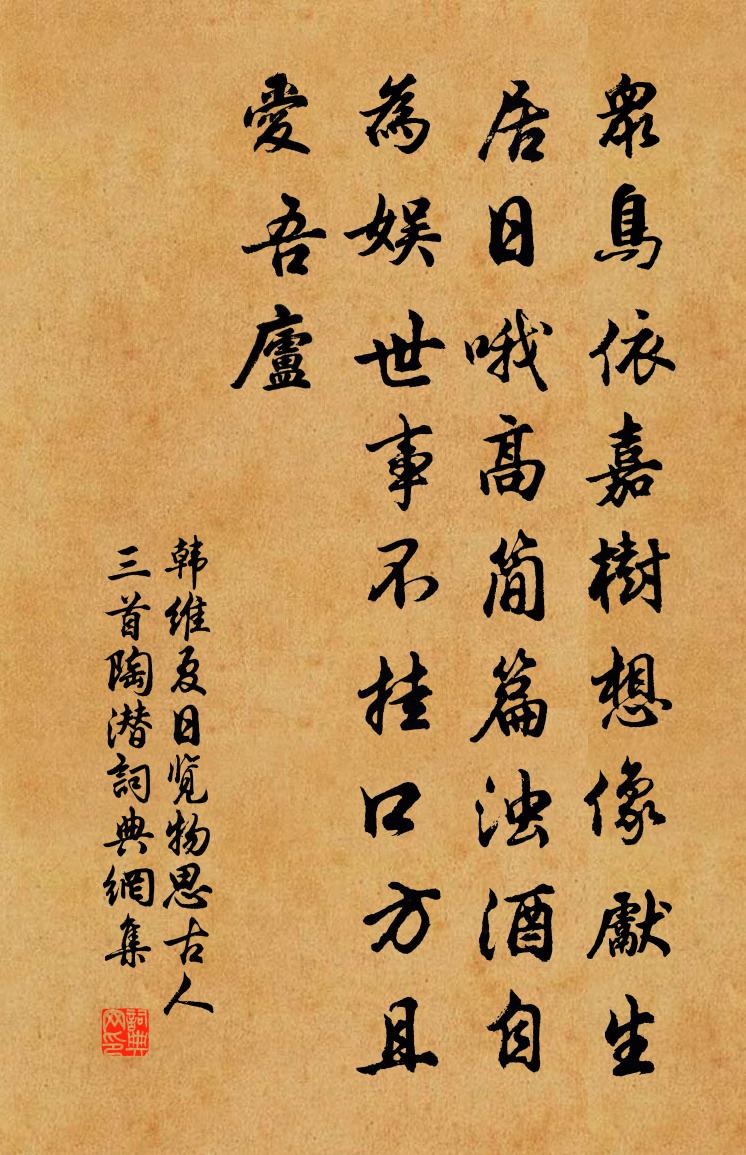 眾鳥依嘉樹想像獻生
居日哦高简篇浊酒自
為娱世事不挂口方且
愛吾廬
韩维夏日览物思古人
三首陶潜詞典網集
詞典
网印